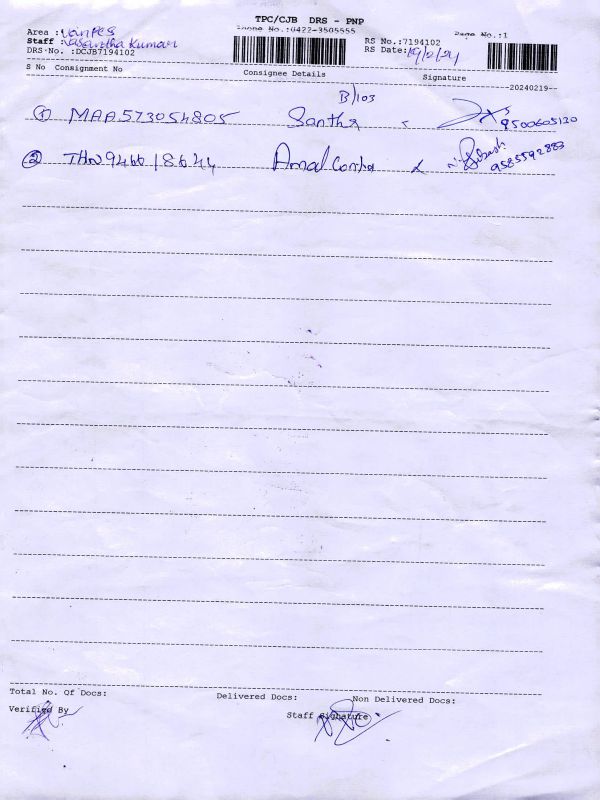 TPC/CJB DRS - PNP
Phone No.:0422-3505555
Page No.:1
Area : Van PCS
Staff : Vasantha Kumar
RS No.:7194102
DRS No. :DCJB7194102
RS Date: 19/2/24
S No Consignment No Consignee Details Signature
20240219
B/103
① MAA573054805 Santha 9500605120
② THN946618644 Amal Contra 9585592883
Total No. Of Docs: Delivered Docs: Non Delivered Docs:
Verified By Staff Signature